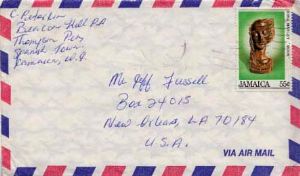 C.
Hall
Thompson Pen
Spanish Town
Jamaica, W.I.
JAMAICA 55c
Mr Jeff Fussell
Box 24015
New Orleans, LA 70184
U.S.A.
VIA AIR MAIL